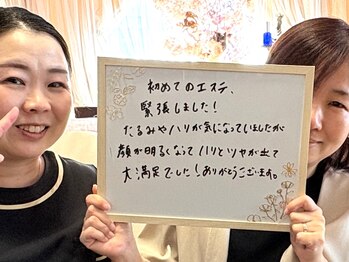 初めてのエステ、
緊張しました！
たるみやハリが気になっていましたが
顔が明るくなって ハリとツヤが出て
大満足でした！ありがとうございます。